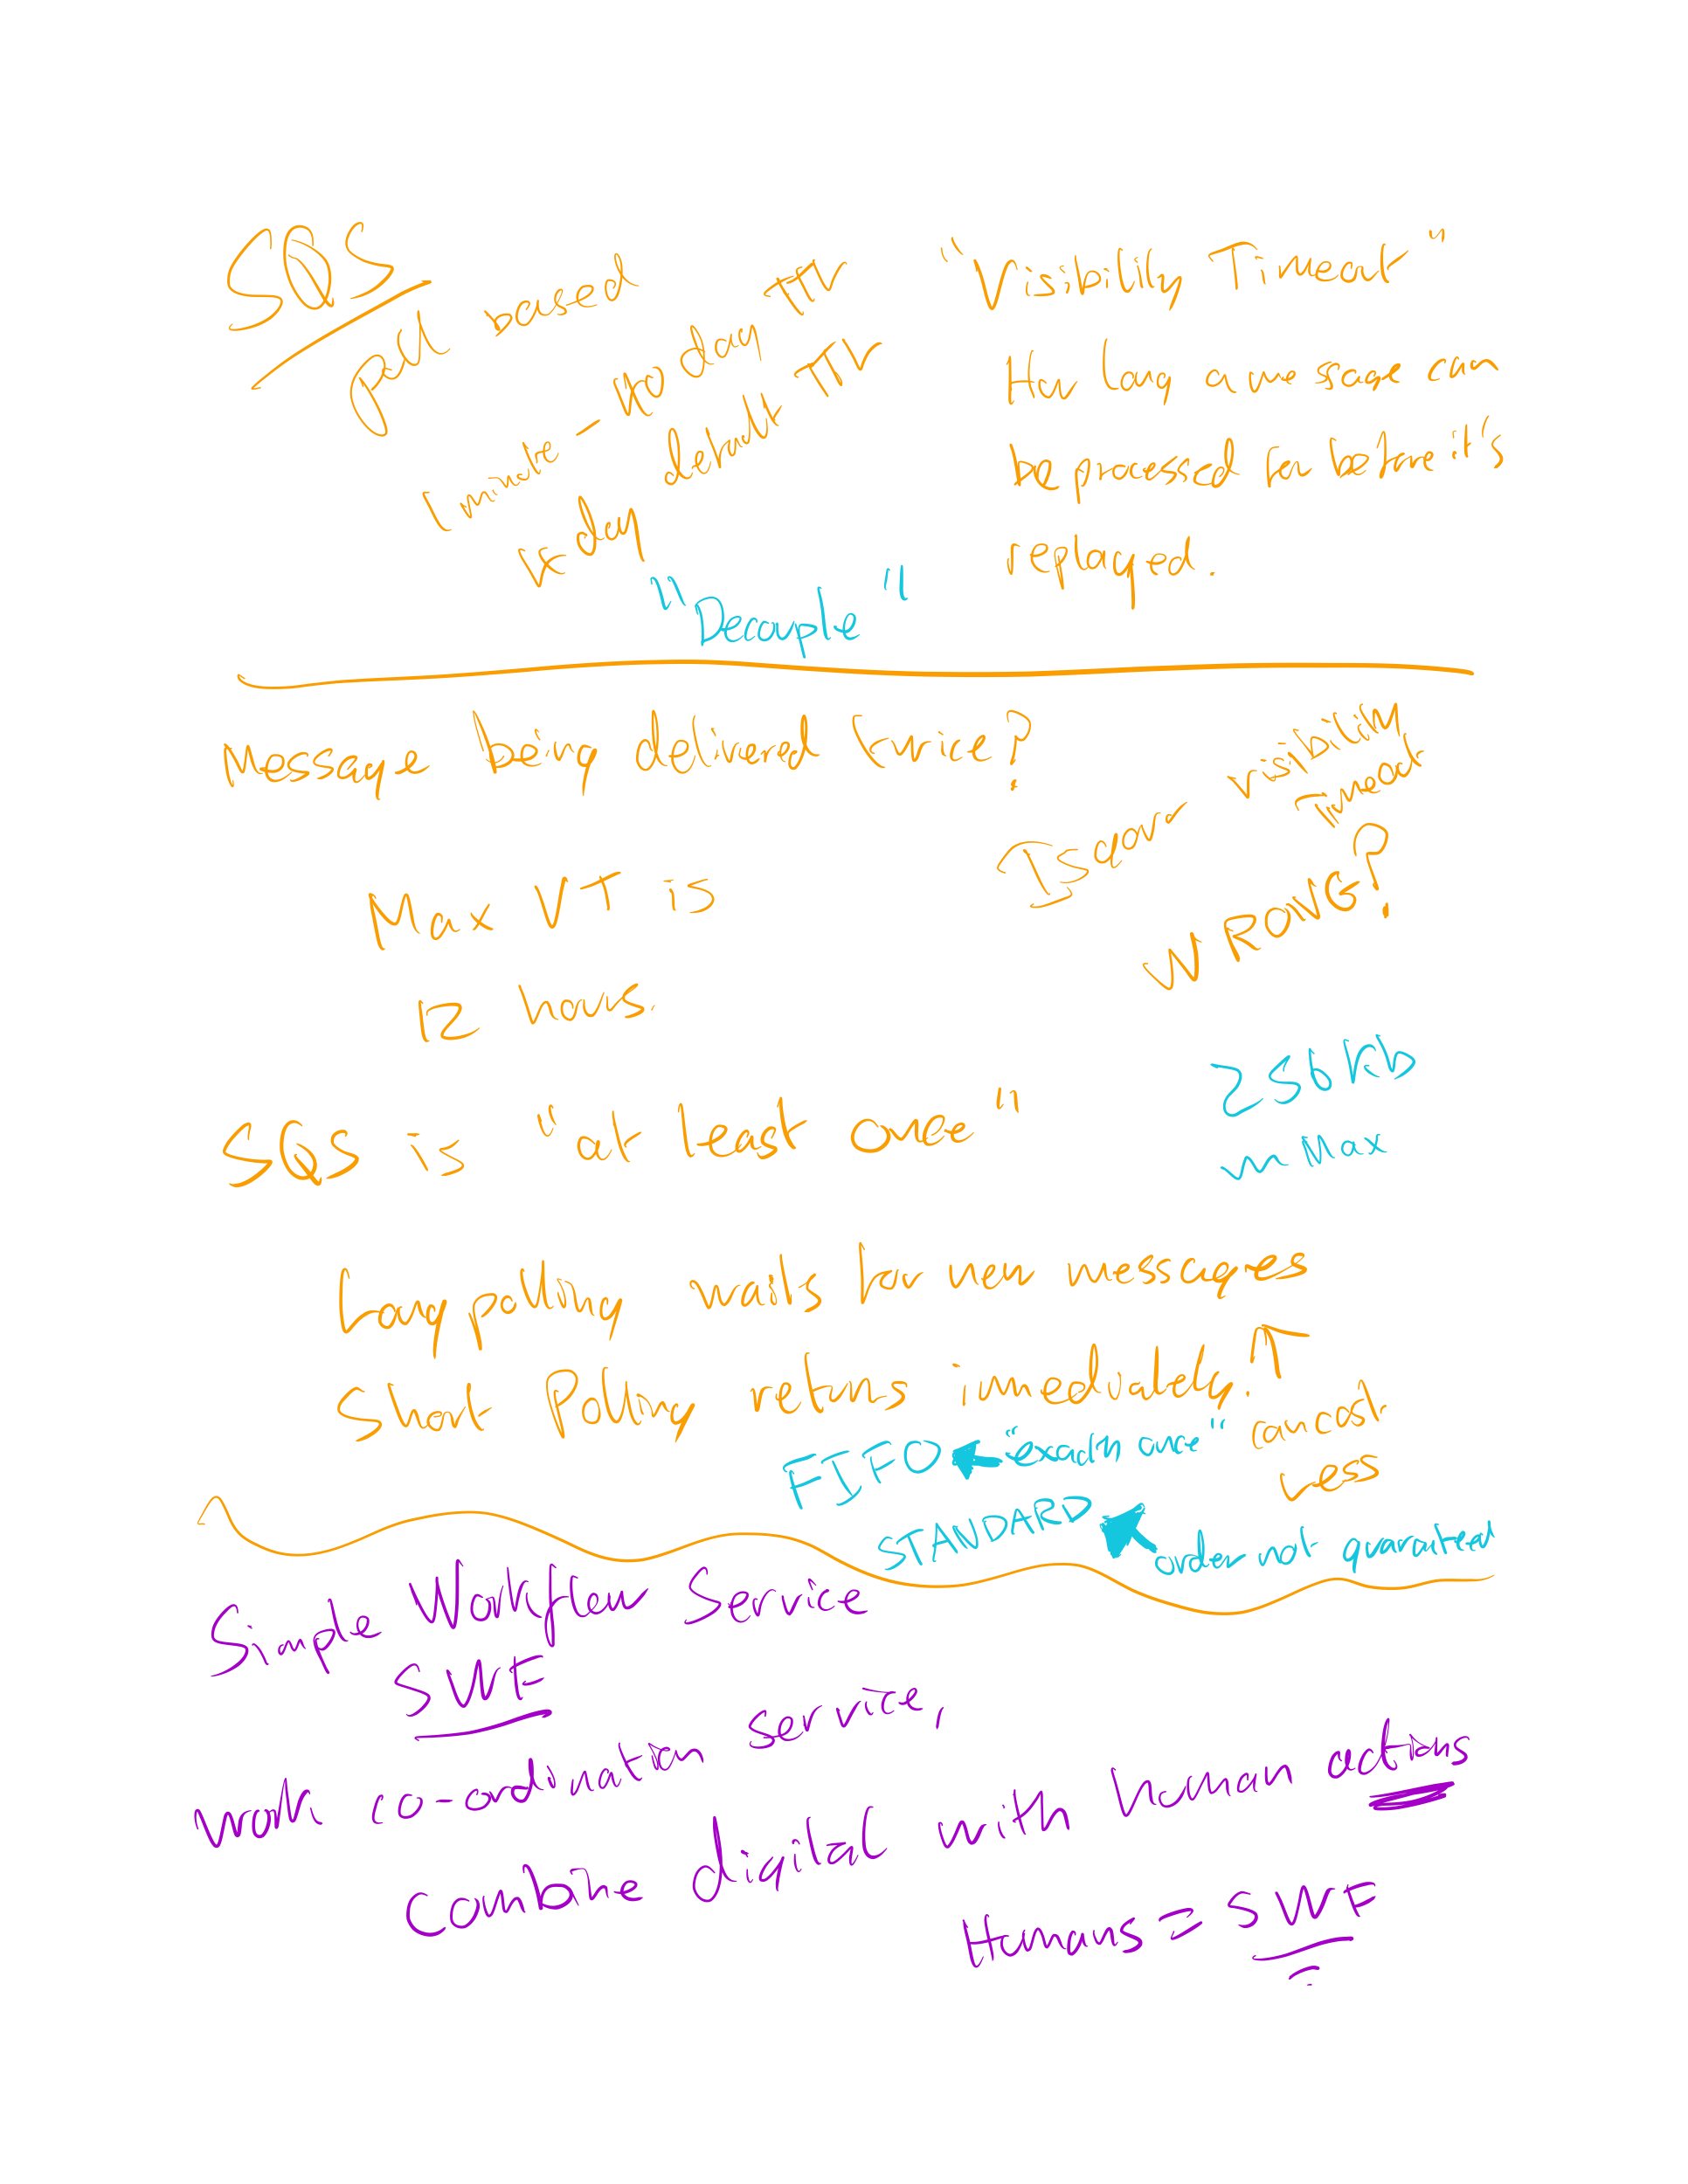 SQS
pull based
1 minute - 14 day TTL
day default TTL
"Visibility Timeout"
How long a message can
be processed for before it's
replayed.
"Decouple"
Message being delivered twice?
Is your visibility
Timeout
WRONG?
Max VT is
12 hours.
SQS is "at least once"
256 Kb
Max
Long polling waits for new messages
Short Polling returns immediately. ↑
costs
Less
FIFO ← "exactly once"
STANDARD ← order not guaranteed
Simple Workflow Service
SWF
Work co-ordination service,
Combine digital with human actions
Humans = SWF